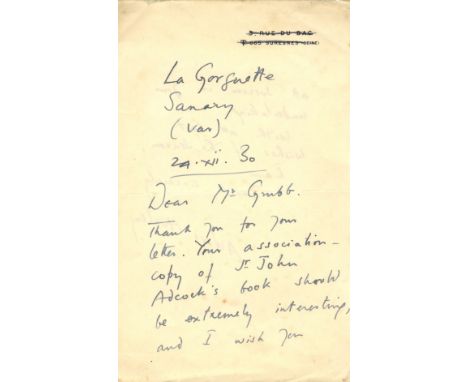 3, RUE DU BAC
SURESNES (SEINE)
La Gorguette
Sanary
(Var)
27.xii.30
Dear Mr Grubb.
Thank you for your
letter. Your association-
copy of St John
Adcock's book should
be extremely interesting,
and I wish you